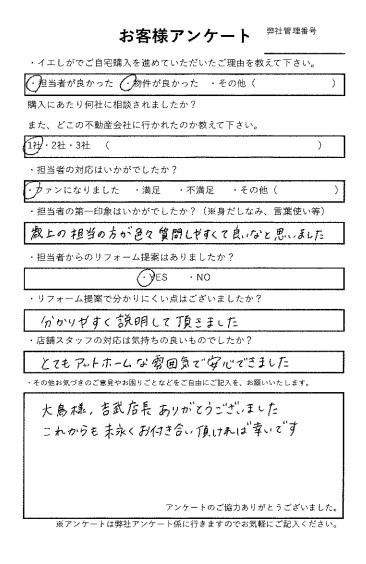 お客様アンケート
弊社管理番号
・イエしがでご自宅購入を進めていただいたご理由を教えて下さい。
・担当者が良かった ・物件が良かった ・その他（ ）
購入にあたり何社に相談されましたか？
また、どこの不動産会社に行かれたのか教えて下さい。
1社・2社・3社 （ ）
・担当者の対応はいかがでしたか？
・ファンになりました ・満足 ・不満足 ・その他（ ）
・担当者の第一印象はいかがでしたか？（※身だしなみ、言葉使い等）
歳上の担当の方が色々質問しやすくて良いなと思いました
・担当者からのリフォーム提案はありましたか？
・YES ・NO
・リフォーム提案で分かりにくい点はございましたか？
分かりやすく説明して頂きました
・店舗スタッフの対応は気持ちの良いものでしたか？
とてもアットホームな雰囲気で安心できました
・その他お気づきのご意見やお困りごとなどをご自由にご記入を、お願いいたします。
大鳥様，吉武店長ありがとうございました
これからも末永くお付き合い頂ければ幸いです
アンケートのご協力ありがとうございました。
※アンケートは弊社アンケート係に行きますのでお気軽にご記入ください。